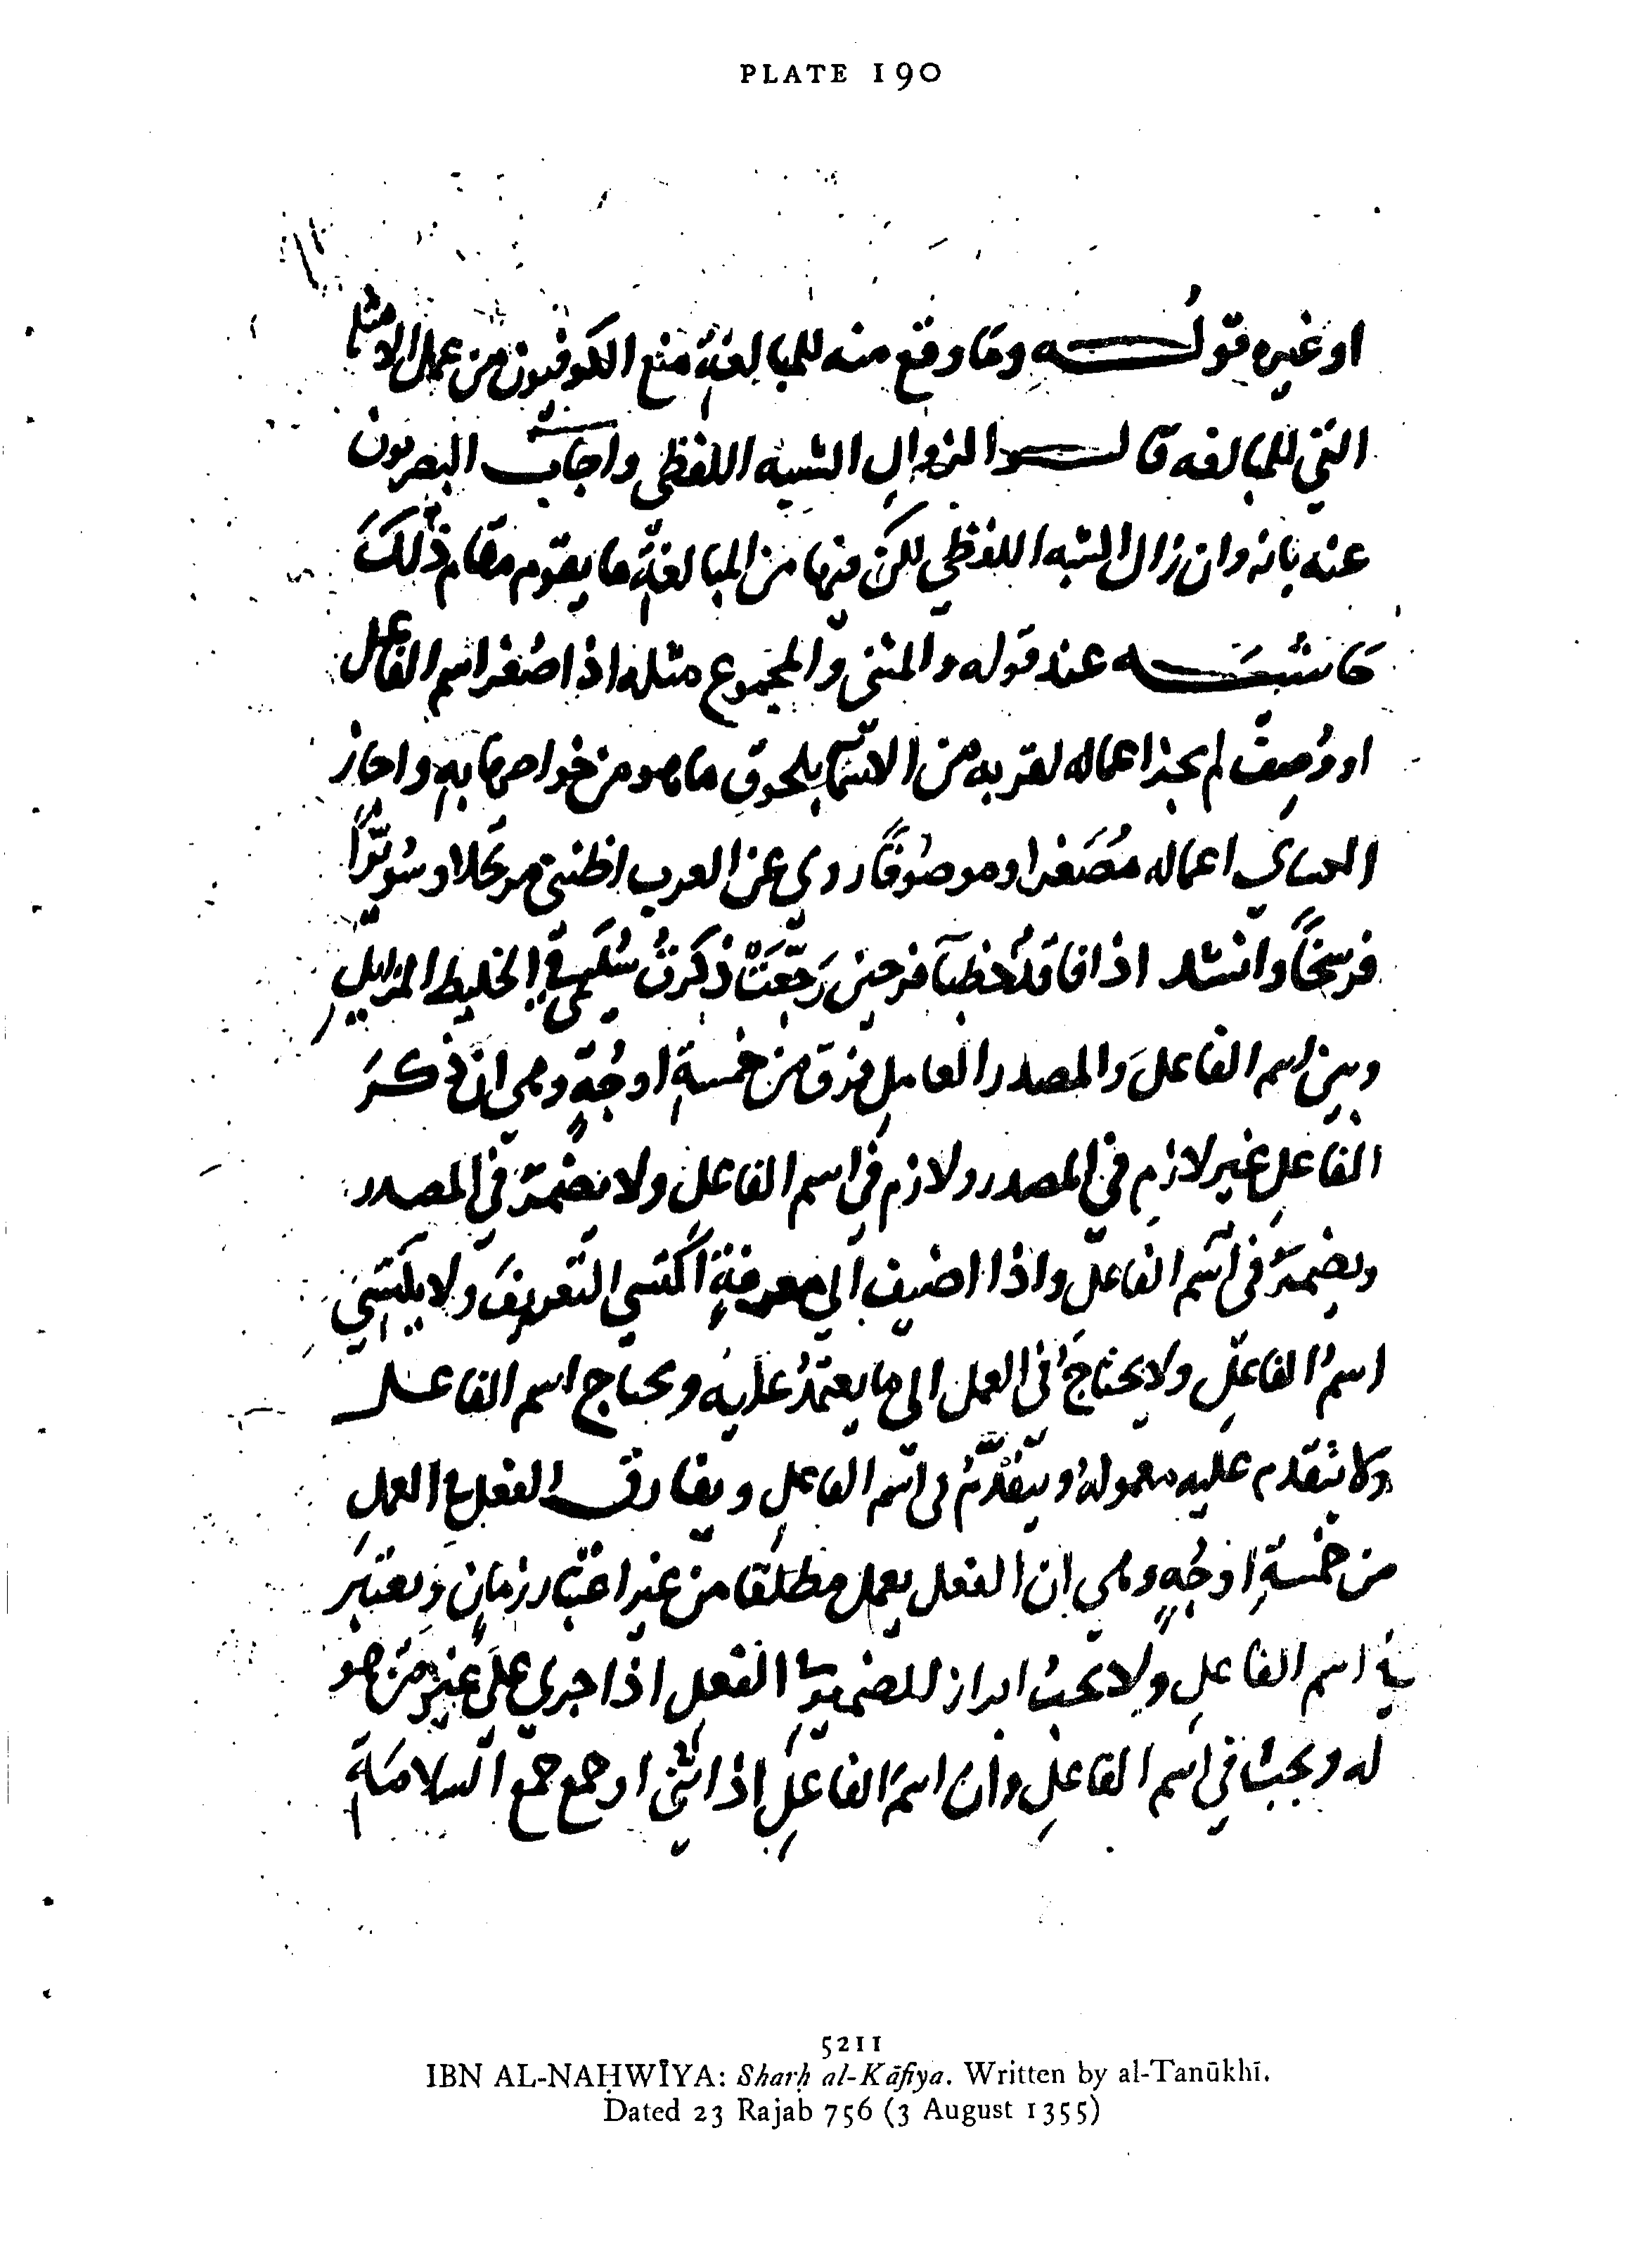 PLATE 190
او غيره قوله وما وقع منه للمبالغة منع الكوفيون من عمل الامثلة
التي للمبالغه قالوا لزوال الشبه اللفظي واجاب البصريون
عنه بانه وان زال الشبه اللفظي لكن فيها من المبالغة ما يقوم مقام ذلك
عند قوله والمثنى والمجموع مثله اذا صغر اسم الفاعل
او وُصِف لم يجز اعماله لقربه من الاسماء بلحوق ما هو من خواصها به واجاز
الكساي اعماله مُصَغرا وموصُوفًا روي عن العرب اظنني مرتحلا وسُويّرًا
فرسخًا وانشد اذا فاقدٌ خطباء فرخين رَجّعَتْ ذكرتُ سُليمى في الخليط المزايلِ
وبين اسم الفاعل والمصدر العاملِ فرق من خمسةِ اوجُهٍ وهي ان ذكرَ
الفاعلِ غير لازمٍ في المصدر ولازم في اسم الفاعل ولا يضمرُ في المصدر
ويضمرُ في اسم الفاعل واذا اضيف الى معرفةٍ اكتسى التعريفَ ولا يكتسي
اسمُ الفاعلِ ولا يحتاجُ في العمل الى ما يعتمدُ عليه ويحتاج اسم الفاعل
ولا يتقدم عليه معمولهُ ويتقدّمُ في اسم الفاعلِ ويفارق الفعل في العمل
من خمسةِ اوجُهٍ وهي ان الفعل يعمل مطلقا من غير اعتبار زمانٍ ويعتبرُ
في اسم الفاعلِ ولا يجبُ ابراز الضمير في الفعلِ اذا جرى على غير من هو
له ويجب في اسم الفاعلِ وان اسمَ الفاعلِ اذا ثني او جمع جمع السلامةِ
5211
IBN AL-NAḤWĪYA: Sharḥ al-Kāfiya. Written by al-Tanūkhī.
Dated 23 Rajab 756 (3 August 1355)